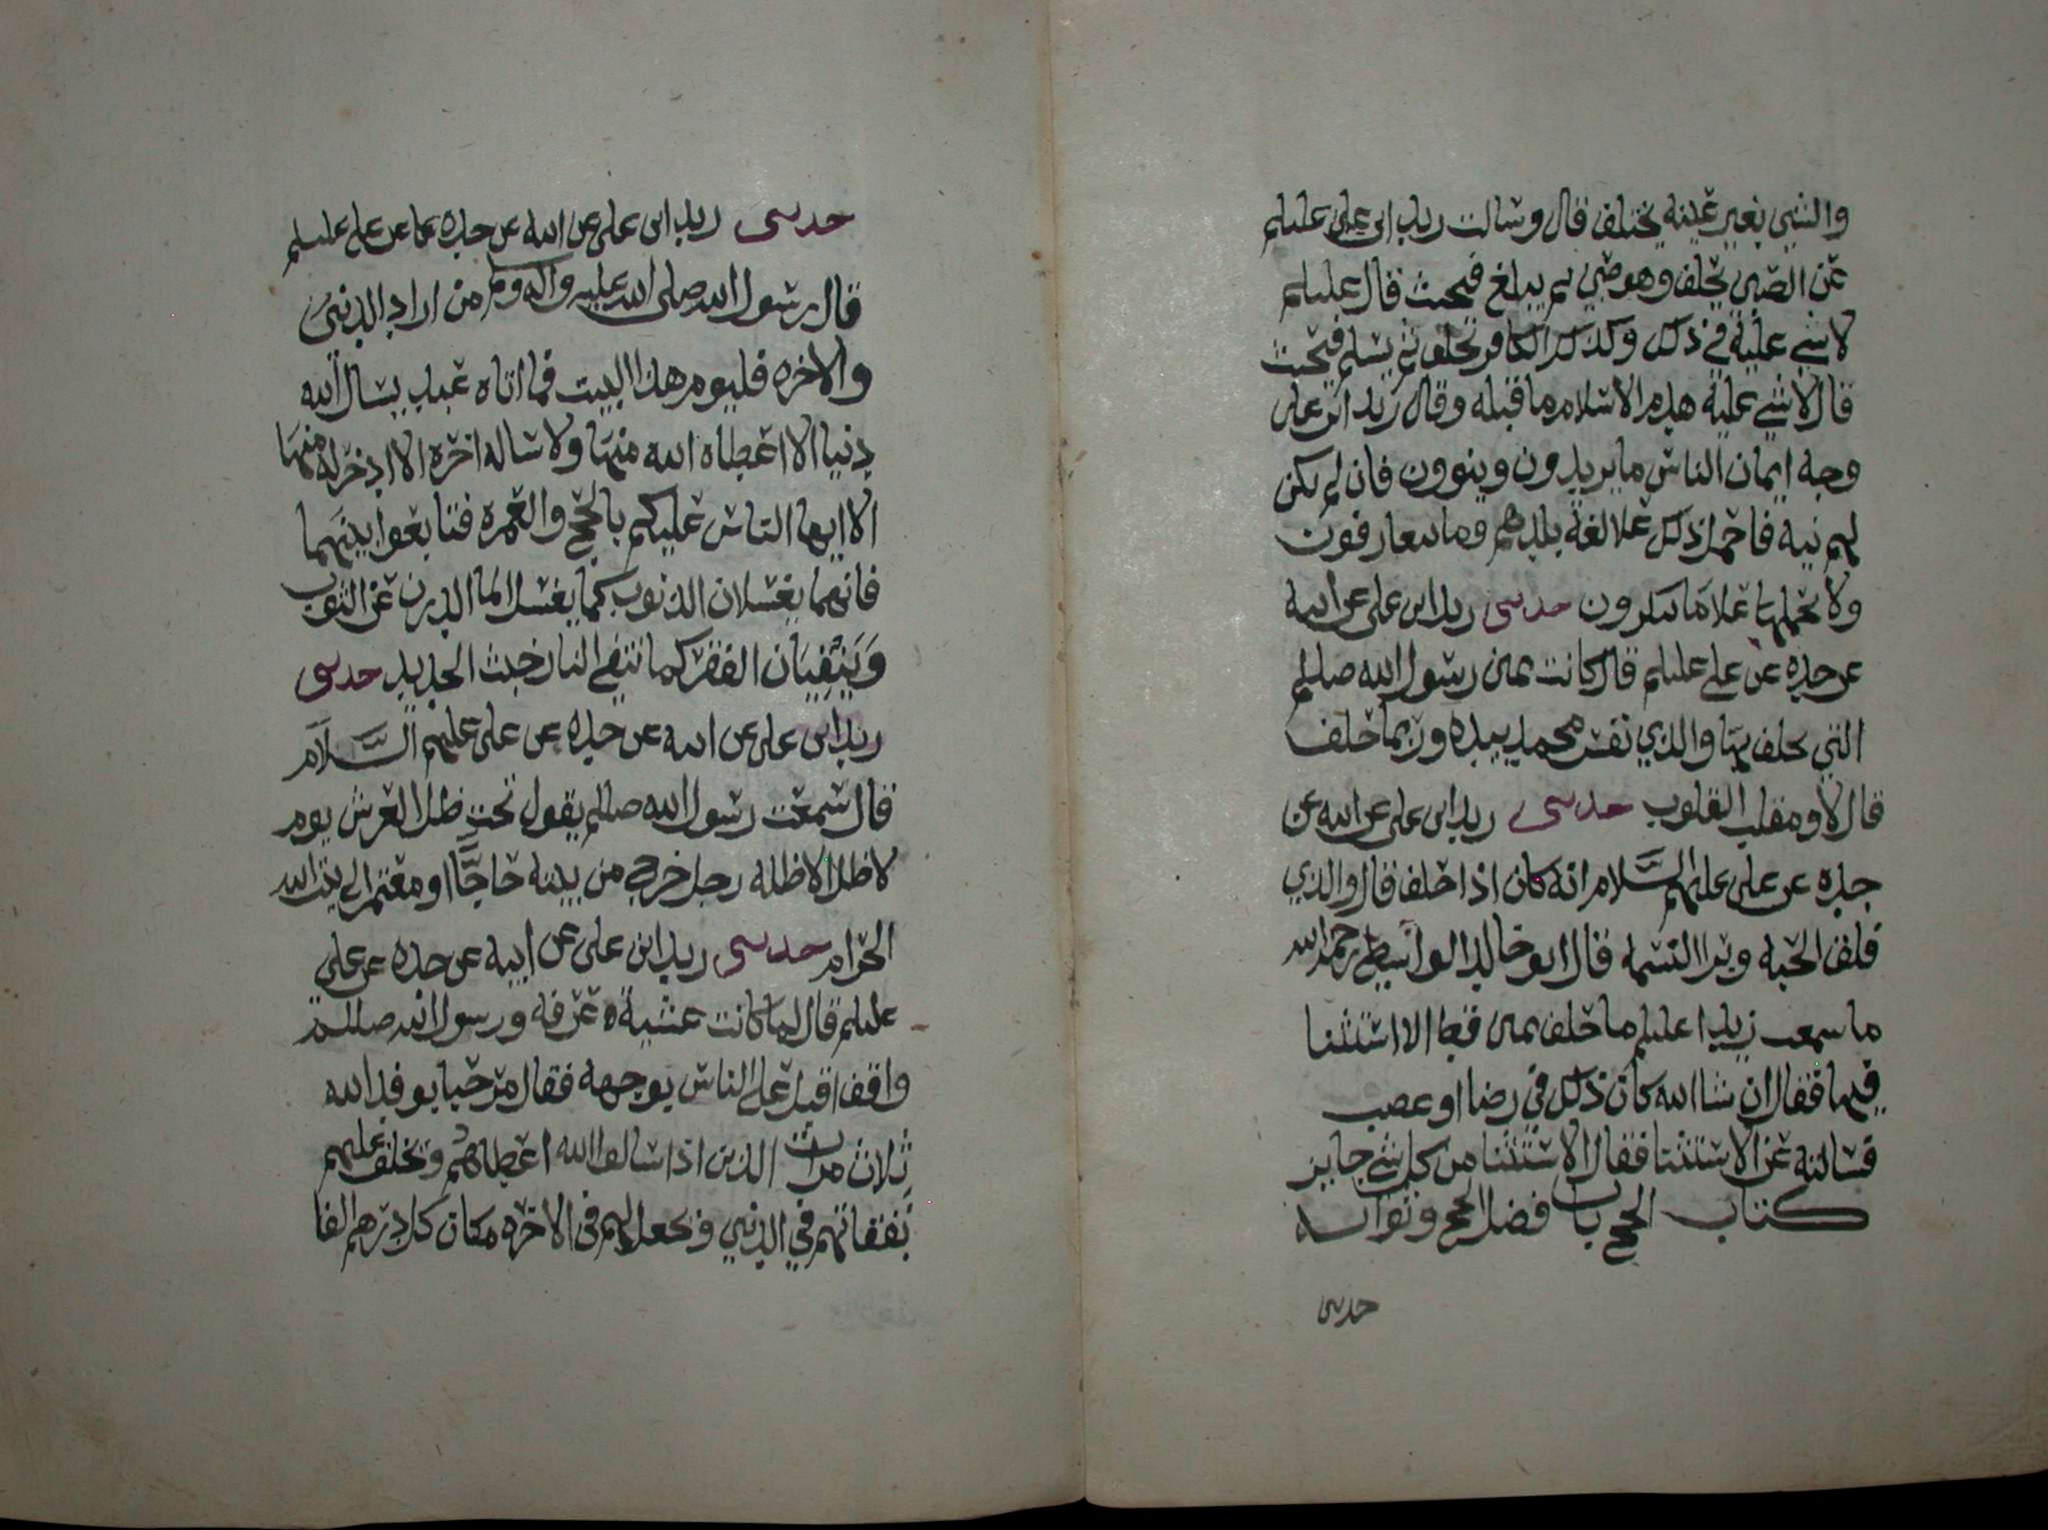 والشي بغير عينه يختلف قال وسالت زيد ابن علي عليلم
عن الصبي يحلف وهو صبي لم يبلغ فيحنث قال عليلم
لا شي عليه في ذلك وكذلك الكافر يحلف ثم يسلم فيحنث
قال لا شي عليه هدم الاسلام ما قبله وقال زيد ابن علي
وجه ايمان الناس ما يريدون وينوون فان لم يكن
لهم نية فاحمل ذلك علا لغة بلدهم وما يتعارفون
ولا تحملها علا ما ينكرون حدثني زيد ابن علي عن ابيه
عن جده عن علي عليلم قال كانت يمين رسول الله صللم
التي يحلف بها والذي نفس محمد بيده وربما حلف
قال لا ومقلب القلوب حدثني زيد ابن علي عن ابيه عن
جده عن علي عليهم السلام انه كان اذا حلف قال والذي
فلق الحبه وبرا النسمه قال ابو خالد الواسطي رحمه الله
ما سمعت زيدا عليلم ما حلف يمين قط الا استثنا
فيها فقال ان شا الله كان ذلك في رضا او غضب
فسالته عن الاستثنا فقال الاستثنا من كل شي جايز
كتاب الحج باب فضل الحج وثوابه
حدثني
حدثني زيد ابن علي عن ابيه عن جده عن علي عليلم
قال رسول الله صلى الله عليه واله وسلم من اراد الدنيى
والاخره فليوم هذا البيت فما اتاه عبد يسال الله
دنيا الا اعطاه الله منها ولا ساله اخره الا ادخر له منها
الا ايها الناس عليكم بالحج والعمره فتابعوا بينهما
فانهما يغسلان الذنوب كما يغسل الما الدرن عن الثوب
وينفيان الفقر كما تنفي النار خبث الحديد حدثني
زيد ابن علي عن ابيه عن جده عن علي عليهم السلام
قال سمعت رسول الله صللم يقول تحت ظل العرش يوم
لا ظل الا ظله رجل خرج من بيته حاجا او معتمر الى بيت الله
الحرام حدثني زيد ابن علي عن ابيه عن جده عن علي
عليلم قال لما كانت عشية عرفه ورسول الله صللم
واقف اقبل على الناس بوجهه فقال مرحبا بوفد الله
ثلاث مرات الذين اذا سالوا الله اعطاهم وتخلف عليهم
نفقاتهم في الدنيى وتجعل لهم في الاخره مكان كل درهم الفا